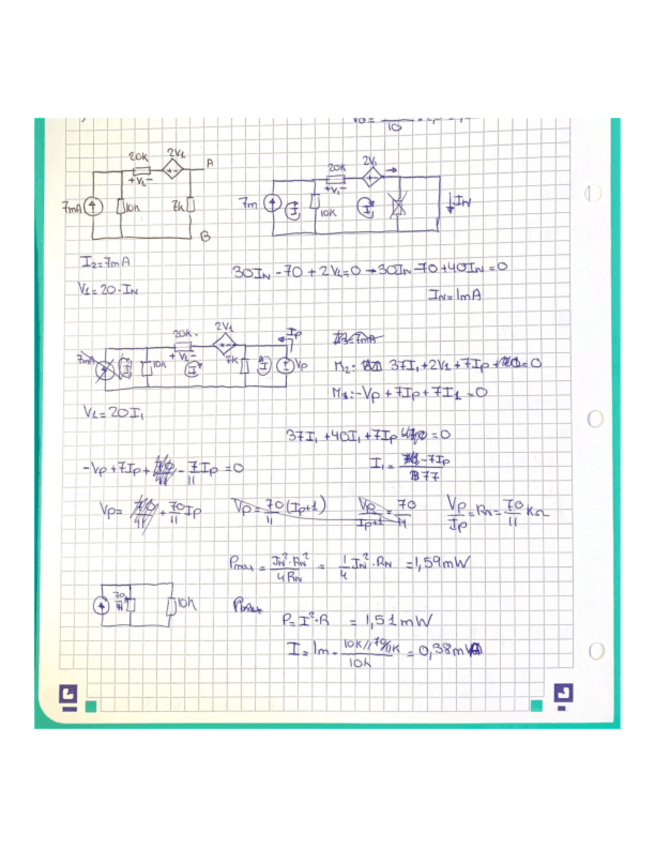 10
20k 2V₁ A
+V₁-
7mA 10k 7k
B
20k 2V₁
+V₁-
7m I 10k I I_N
I₂=7mA
V₁=20·I_N
30I_N-70+2V₁=0→30I_N-70+40I_N=0
I_N=1mA
20k· 2V₁ I_P
+V₁-
7mA 10k I 7k I V_P
V₁=20I₁
M₂: 37I₁+2V₁+7I_P=0
M₃:-V_P+7I_P+7I₁=0
37I₁+40I₁+7I_P=0
I₁=-7I_P/77
-V_P+7I_P-7I_P/11=0
V_P=70/11 I_P
V_P=70/11(I_P+1)
V_P/I_P+1=70/11
V_P/I_P=R_N=70/11 KΩ
Pmax=I_N²·R_N²/4R_N=1/4 I_N²·R_N=1,59mW
70/11 10k
Pmax
P=I²·R=1,51mW
I=1m·10k//70/11K/10k=0,38mA